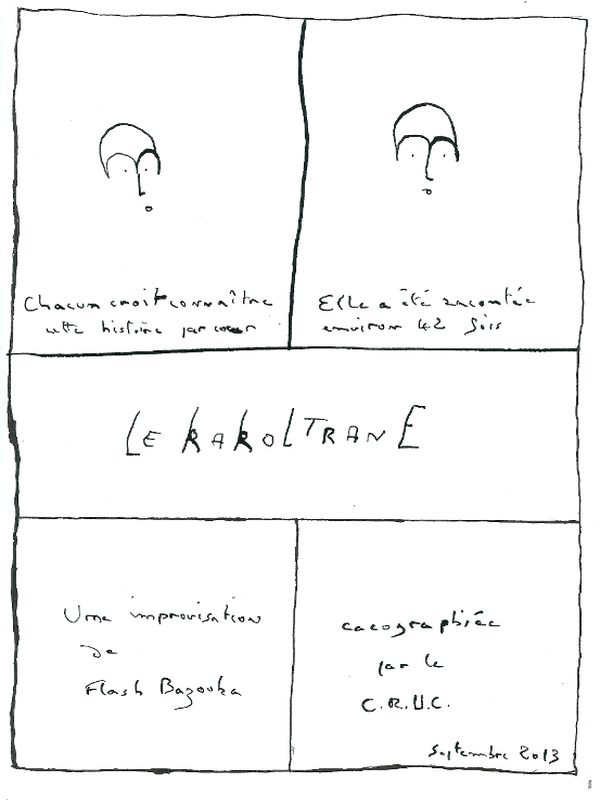 Chacun croit connaître
cette histoire par cœur
Elle a été racontée
environ 42 fois
LE KAKOLTRANE
Une improvisation
de
Flash Bazouka
cacographiée
par le
C.R.U.C.
Septembre 2013
1